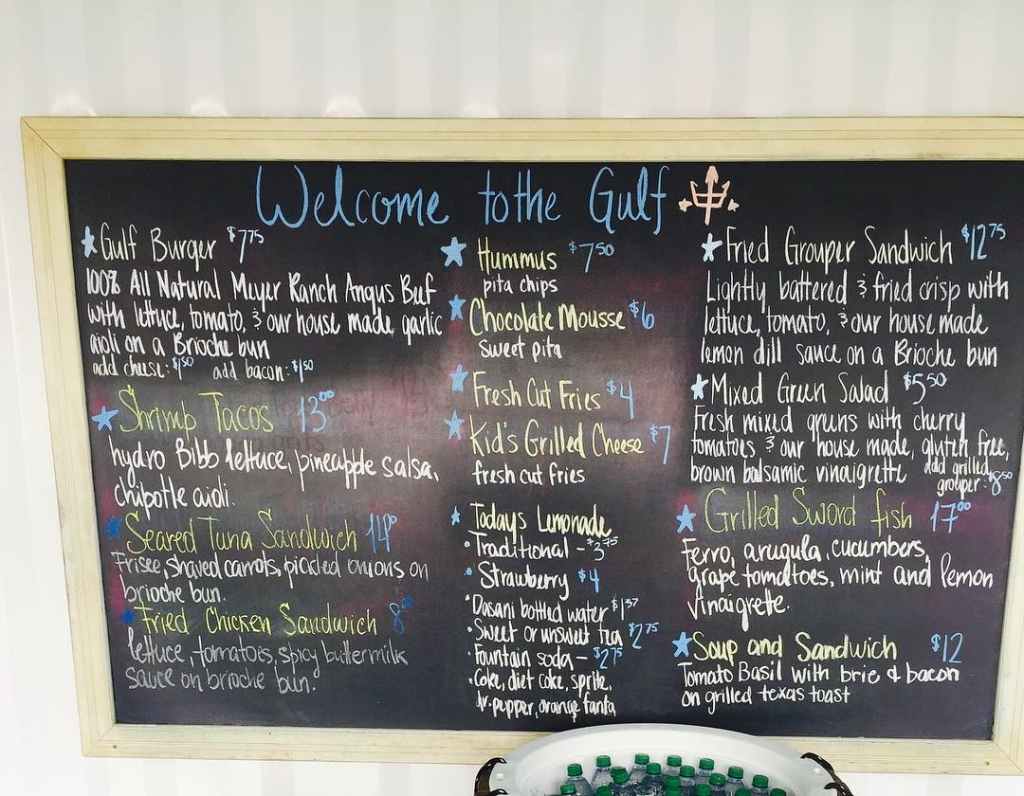 Welcome to the Gulf
Gulf Burger $7.75
100% All Natural Meyer Ranch Angus Beef
with lettuce, tomato, & our house made garlic
aioli on a Brioche bun
add cheese: $1.50 add bacon: $1.50
Shrimp Tacos 13.00
hydro Bibb lettuce, pineapple salsa,
chipotle aioli.
Seared Tuna Sandwich
Frisee, shaved carrots, pickled onions on
brioche bun.
Fried Chicken Sandwich
lettuce, tomatoes, spicy buttermilk
sauce on brioche bun.
Hummus $7.50
pita chips
Chocolate Mousse $6
Sweet pita
Fresh Cut Fries $4
Kid's Grilled Cheese $7
fresh cut fries
Todays Lemonade
Traditional - $3.75
Strawberry $4
Dasani bottled water
Sweet or unsweet tea $2.75
Fountain soda - $2.75
Coke, diet coke, sprite,
dr. pepper, orange fanta
Fried Grouper Sandwich $12.75
Lightly battered & fried crisp with
lettuce, tomato, & our house made
lemon dill sauce on a Brioche bun
Mixed Green Salad $5.50
Fresh mixed greens with cherry
tomatoes & our house made, gluten free,
brown balsamic vinaigrette add grilled
grouper: $8.50
Grilled Sword fish 17.00
Ferro, arugula, cucumbers,
grape tomatoes, mint and lemon
vinaigrette.
Soup and Sandwich $12
Tomato Basil with brie & bacon
on grilled texas toast